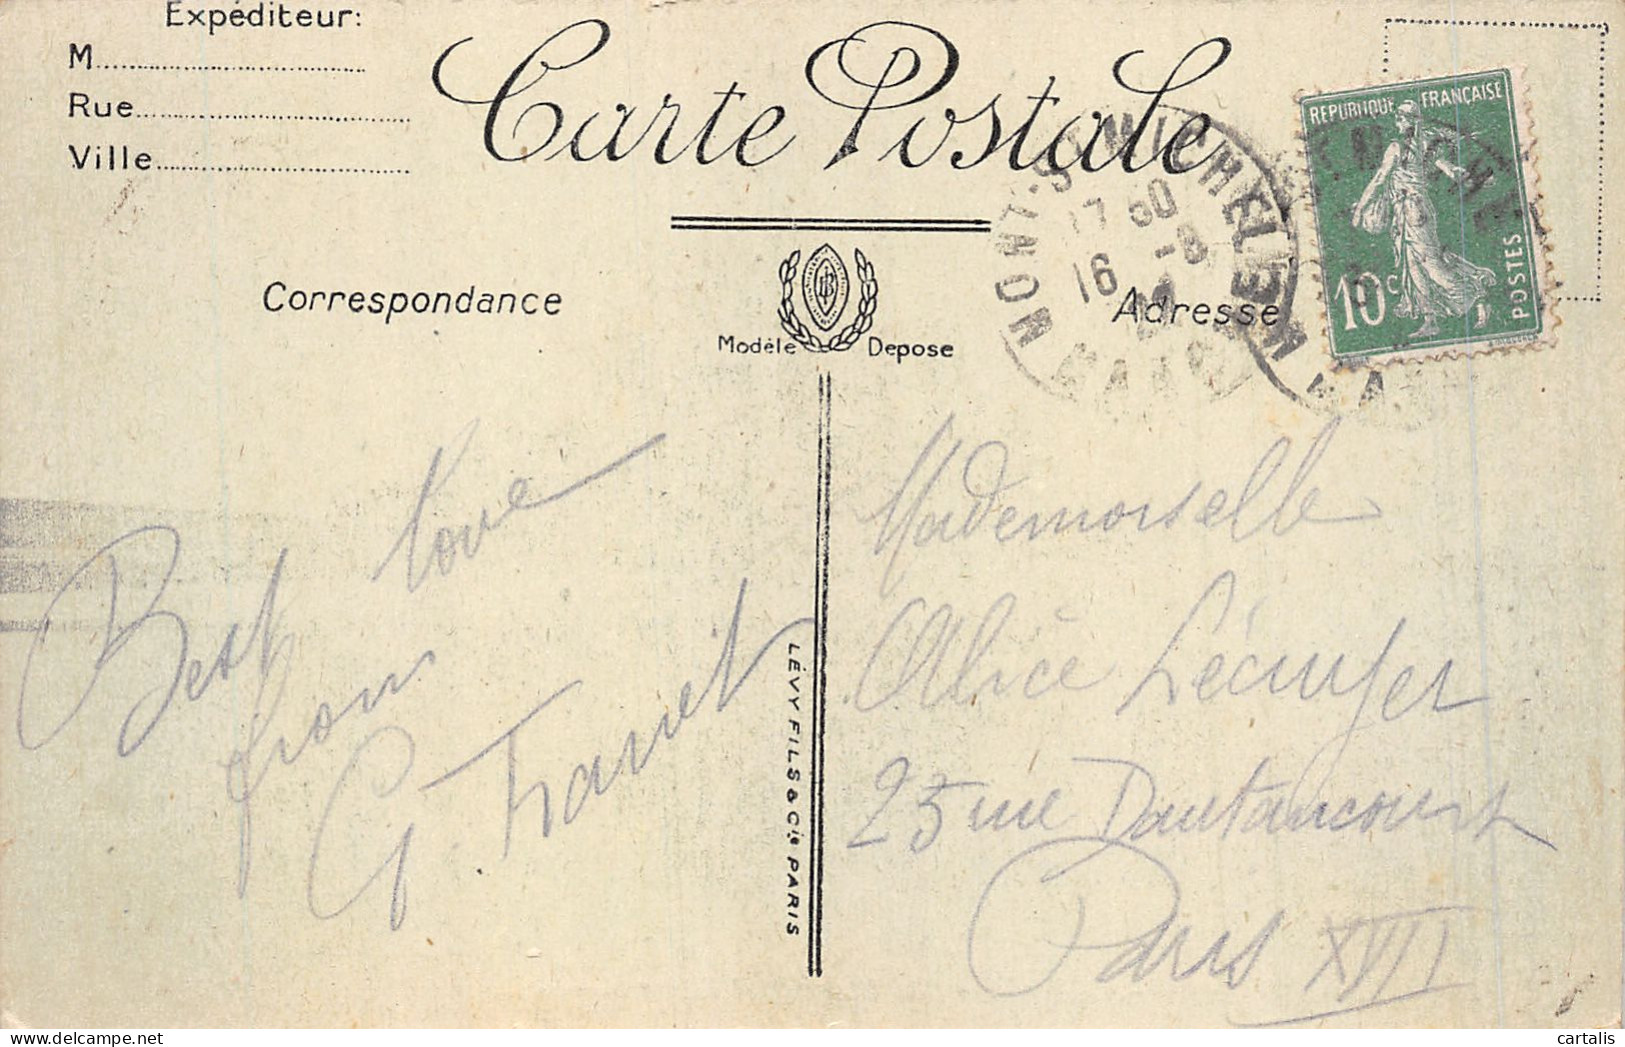 Expéditeur:
M
Rue
Ville
Carte Postale
REPUBLIQUE FRANÇAISE
10c
POSTES
MONT-ST-MICHEL
17 30
16 -8
MANCHE
Correspondance
Modèle Depose
Adresse
Best love
from
G.
LÉVY FILS & Cie PARIS
Mademoiselle
Alice
25 rue Dautancourt
Paris XVII
cartalis